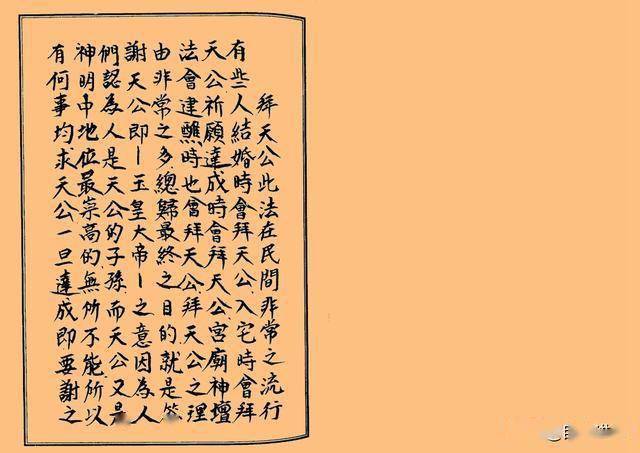 拜天公此法在民間非常之流行
有些人結婚時會拜天公,入宅時會拜
天公祈願達成時會拜天公,宮廟神壇
法會建醮時也會拜天公,拜天公之理
由非常之多,總歸最終之目的就是答
謝天公即—玉皇大帝—之意因為人
們認為人是天公的子孫而天公又是
神明中地位最崇高的,無所不能,所以
有何事均求天公一旦達成即要謝之